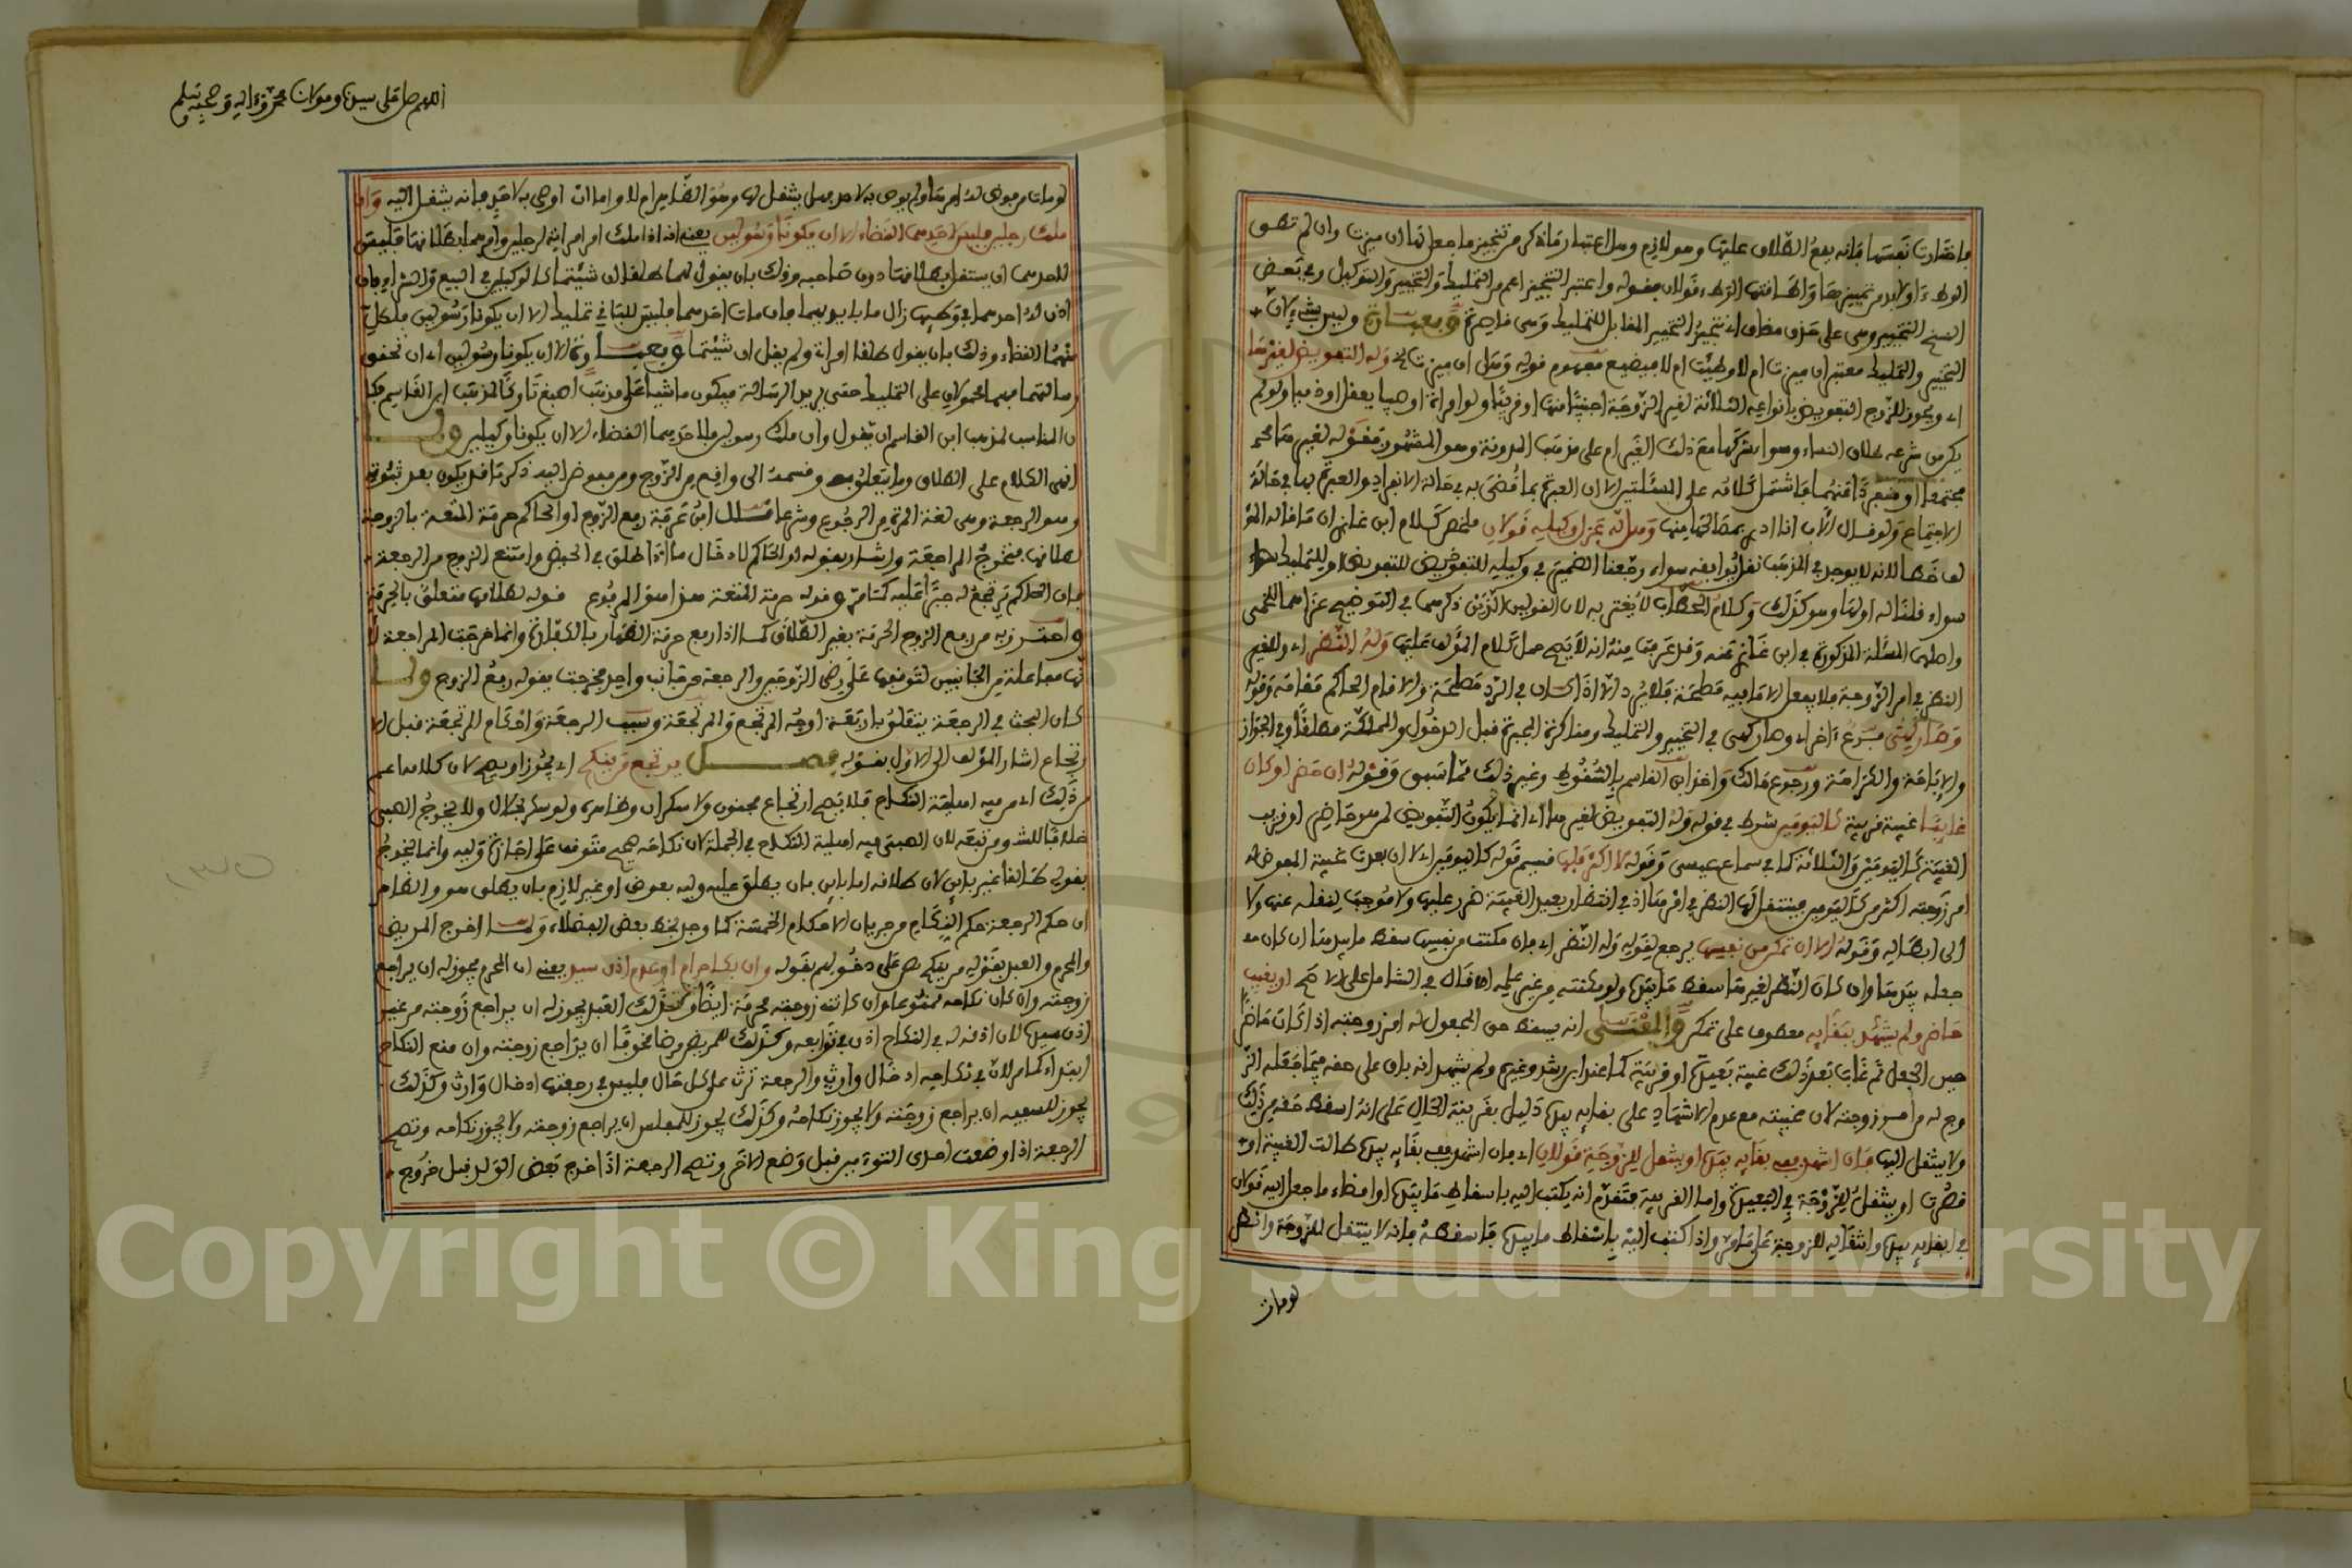 فاختارت نفسها فإنه يقع الطلاق عليها وهو لازم وهل اعتبار ما ذكر من تنجيز ما جعل لها ان ميزت وان لم تطق
الوطء اولا بد من تمييزها واطاقتها الوطء قولان فقوله واعتبر التنجيز اعم من التمليك والتخيير والتوكيل وفي بعض
النسخ التخيير وهي على حذف مضاف اي تنجيز التخيير المقابل للتمليك وهي قاصرة وفي عبارة وليس بشيء لان
التخيير والتمليك معتبر ان ميزت ام لا وطئت ام لا فيضيع مفهوم قوله وهل ان ميزت الخ وله التفويض لغيرها
اي ويجوز للزوج التفويض بانواعه الثلاثة لغير الزوجة اجنبيا منها او قريبا ولو امراة او صبيا يعقل او ذميا ولو لم
يكن من شرعه طلاق النساء وسواء شركها مع ذلك الغير ام لا على مذهب المدونة وهو المشهور فقوله لغيرها
مجتمعا او منفردا عنها فاشتمل كلامه على المسئلتين الا ان العبرة بما قضى به في حالة الانفراد والعبرة بهما في حالة
الاجتماع ولو قال الاب انا ادرى بمصالحها منها وهل له عزل وكيله قولان ملخص كلام ابن غازي ان ما قاله المؤلف
لفا خطا لانه لا يوجد في المذهب نقل يوافقه سواء رجعنا الضمير في وكيله للتفويض او للتمليك
سواء قلنا له او لها وهو كذلك وكلام الحطاب لا يغتر به لان القولين الذين ذكرهما في التوضيح عزاهما للخمي
واصلها المسئلة المذكورة في ابن غازي عنه وقد عرفت منه انه لا يصح حمل كلام المؤلف عليها وله النظر اي وللغير
النظر في امر الزوجة فلا يفعل الا ما فيه مصلحة فلا يرد الا اذا كان في الرد مصلحة والا قام الحاكم مقامه وقوله
وصار كهي فرع اخر اي وصار كهي في التخيير والتمليك ومناكرة المخيرة قبل الدخول والمملكة مطلقا وفي الجواز
والاباحة والكراهة ورجوع مالك واخذ ابن القاسم بالسقوط وغير ذلك مما سبق وقوله ان حضر او كان
غايبا غيبة قريبة كاليومين شرط في قوله وله التفويض لغيرها اي انما يكون التفويض لمن هو حاضر او قريب
الغيبة كاليومين والثلاثة كما في سماع عيسى وقوله لا اكثر فلها قسيم قوله كاليومين اي الا ان بعدت غيبة المفوض له
امر زوجته اكثر من كاليومين فينتقل لها النظر في امرها اذ في انتظار بعيد الغيبة ضرر عليها ولا موجب لنقله عنها ولا
الى ابطاله وقوله الا ان تمكن من نفسها يرجع لقوله وله النظر اي فان مكنت من نفسها سقط ما بيدها ان كان هو
جعله بيدها وان كان النظر لغيرها سقط ما بيده ولو مكنته من غير علمه اه قال في الشامل على الاصح او يغيب
حاضر ولم يشهد ببقائه معطوف على تمكن والمعنى انه يسقط حق المجعول له امر زوجته اذا كان حاضرا
حين الجعل ثم غاب بعد ذلك غيبة بعيدة او قريبة كما عند ابن رشد وغيره ولم يشهد انه باق على حقه فيما جعله الز
وج له من امر زوجته لان غيبته مع عدم الاشهاد على بقايه بيده دليل بقرينة الحال على انه اسقط حقه من ذلك
ولا ينتقل اليها فان اشهد ففي بقايه بيده او ينتقل للزوجة قولان اي فان اشهد ففي بقايه بيده طالت الغيبة او
قصرت او ينتقل للزوجة في البعيدة واما القريبة فتقدم انه يكتب اليه باسقاط ما بيده او امضاء ما جعل اليه قولان
في ابقايه بيده وانتقاله للزوجة على ما مر واذا كتب اليه باسقاط ما بيده فاسقطه فانه لا ينتقل للزوجة وانظر
لو مات
اللهم صل على سيدنا ومولانا محمد وءاله وصحبه وسلم
لو مات من فوض له امرها ولم يوص به لاحد هل ينتقل لها وهو الظاهر ام لا واما ان اوصى به لاحد فانه ينتقل اليه وان
ملك رجلين فليس لاحدهما القضاء الا ان يكونا رسولين يعني انه اذا ملك امر امراته لرجلين وامرهما بطلاقها فليس
لاحدهما ان يستقل بطلاقها دون صاحبه وذلك بان يقول لهما طلقا ان شئتما كالوكيلين في البيع والشراء فان
اذن له احدهما في وطئها زال ما بايديهما فان مات احدهما فليس للباقي تمليك الا ان يكونا رسولين فلكل
منهما القضاء وذلك بان يقول طلقا امراتي ولم يقل ان شئتما وفي عبارة الا ان يكونا رسولين اي ان تحقق
رسالتهما فهما محمولان على التمليك حتى يريد الرسالة فيكون ماشيا على مذهب اصبغ تاركا لمذهب ابن القاسم فكا
ن المناسب لمذهب ابن القاسم ان يقول وان ملك رسولين فلاحدهما القضاء الا ان يكونا وكيلين ولما
انهى الكلام على الطلاق وما يتعلق به وقسمه الى واقع من الزوج ومن مفوض اليه ذكر ما قد يكون بعد ثبوته
وهو الرجعة وهي لغة المرة من الرجوع وشرعا قال ابن عرفة رفع الزوج او الحاكم حرمة المتعة بالزوجة
لطلاقها فتخرج المراجعة واشار بقوله او الحاكم لا دخال ما اذا طلق في الحيض وامتنع الزوج من الرجعة
فان الحاكم يرتجع له جبرا عليه كما مر وقوله حرمة المتعة هذا هو المرفوع قوله لطلاقها متعلق بالحرمة
واحترز به من رفع الزوج الحرمة بغير الطلاق كما اذا رفع حرمة الظهار بالكفارة وانما خرجت المراجعة لا
نها مفاعلة من الجانبين لتوقفها على رضى الزوجين والرجعة من جانب واحد فخرجت بقوله رفع الزوج ولما
كان البحث في الرجعة يتعلق باربعة اوجه المرتجع والمرتجعة وسبب الرجعة واحكام المرتجعة قبل الا
رتجاع اشار المؤلف الى الاول بقوله فصل يرتجع من ينكح اي يجوز او يصح لان كلامنا اعم
من ذلك اي من فيه اهلية النكاح فلا يصح ارتجاع مجنون ولا سكران وظاهره ولو سكر بحلال ولا يخرج الصبي
خلافا للش ومن تبعه لان الصبي فيه اهلية النكاح في الجملة لان نكاحه صحيح متوقف على اجازة وليه وانما يخرج
بقوله طالقا غير باين لان طلاقه اما باين بان يطلق عليه وليه بعوض او غير لازم بان يطلق هو والظاهر
ان حكم الرجعة حكم النكاح من جريان الاحكام الخمسة كما وجد بخط بعض الفضلاء ولما اخرج المريض
والمحرم والعبد بقوله من ينكح نص على دخولهم بقوله وان بكاحرام او عدم اذن سيد يعني ان المحرم يجوز له ان يراجع
زوجته وان كان نكاحه ممنوعا وان كانت زوجته محرمة ايضا وكذلك العبد يجوز له ان يراجع زوجته من غير
اذن سيده لان اذنه له في النكاح اذن في توابعه وكذلك للمريض مرضا مخوفا ان يراجع زوجته وان منع النكاح
ابتداء كما مر لان في نكاحه ادخال وارث والرجعة ترث على كل حال فليس في رجعتها ادخال وارث وكذلك
يجوز للسفيه ان يراجع زوجته ولا يجوز نكاحه وكذلك يجوز للمفلس ان يراجع زوجته ولا يجوز نكاحه وتصح
الرجعة اذا وضعت احدى التوءمين قبل وضع الاخر وتصح الرجعة اذا خرج بعض الولد قبل خروج
Copyright © King Saud University